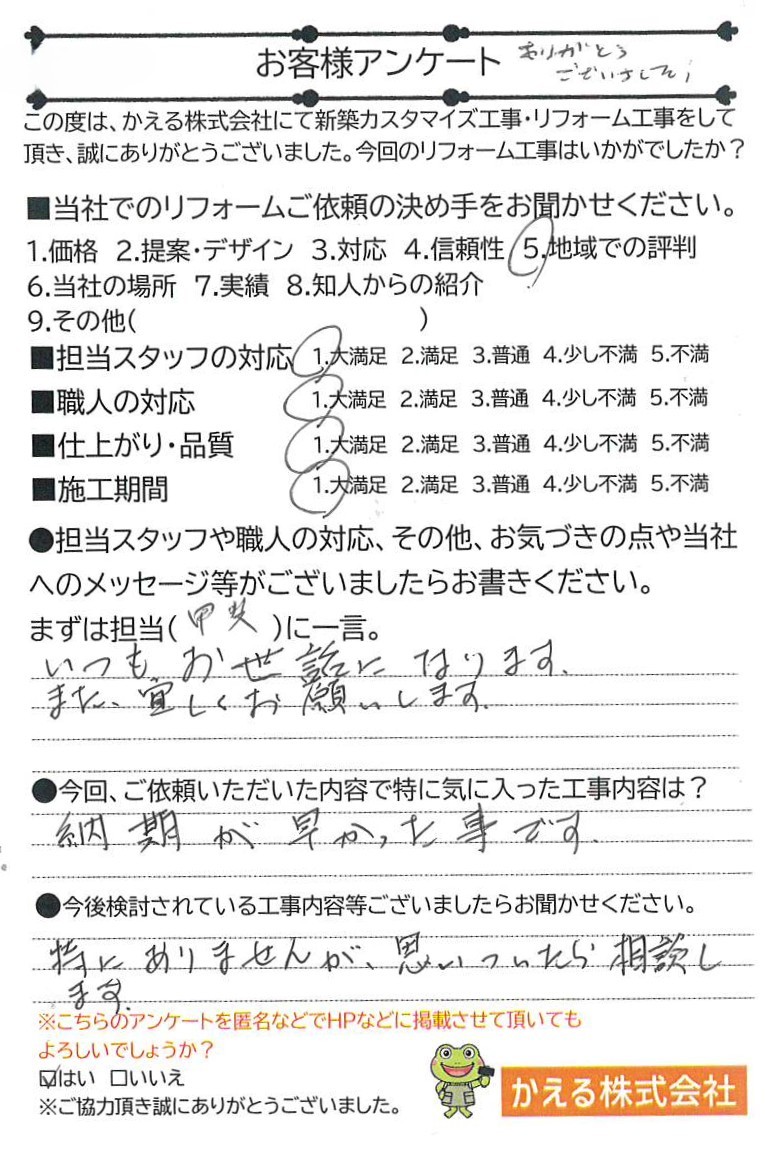 お客様アンケート ありがとう
ございました！
この度は、かえる株式会社にて新築カスタマイズ工事・リフォーム工事をして
頂き、誠にありがとうございました。今回のリフォーム工事はいかがでしたか？
■当社でのリフォームご依頼の決め手をお聞かせください。
1.価格 2.提案・デザイン 3.対応 4.信頼性 5.地域での評判
6.当社の場所 7.実績 8.知人からの紹介
9.その他( )
■担当スタッフの対応 1.大満足 2.満足 3.普通 4.少し不満 5.不満
■職人の対応 1.大満足 2.満足 3.普通 4.少し不満 5.不満
■仕上がり・品質 1.大満足 2.満足 3.普通 4.少し不満 5.不満
■施工期間 1.大満足 2.満足 3.普通 4.少し不満 5.不満
●担当スタッフや職人の対応、その他、お気づきの点や当社
へのメッセージ等がございましたらお書きください。
まずは担当(甲斐)に一言。
いつもお世話になります。
また、宜しくお願いします。
●今回、ご依頼いただいた内容で特に気に入った工事内容は？
納期が早かった事です。
●今後検討されている工事内容等ございましたらお聞かせください。
特にありませんが、思いついたら相談し
ます。
※こちらのアンケートを匿名などでHPなどに掲載させて頂いても
よろしいでしょうか？
☑はい □いいえ
※ご協力頂き誠にありがとうございました。
かえる株式会社